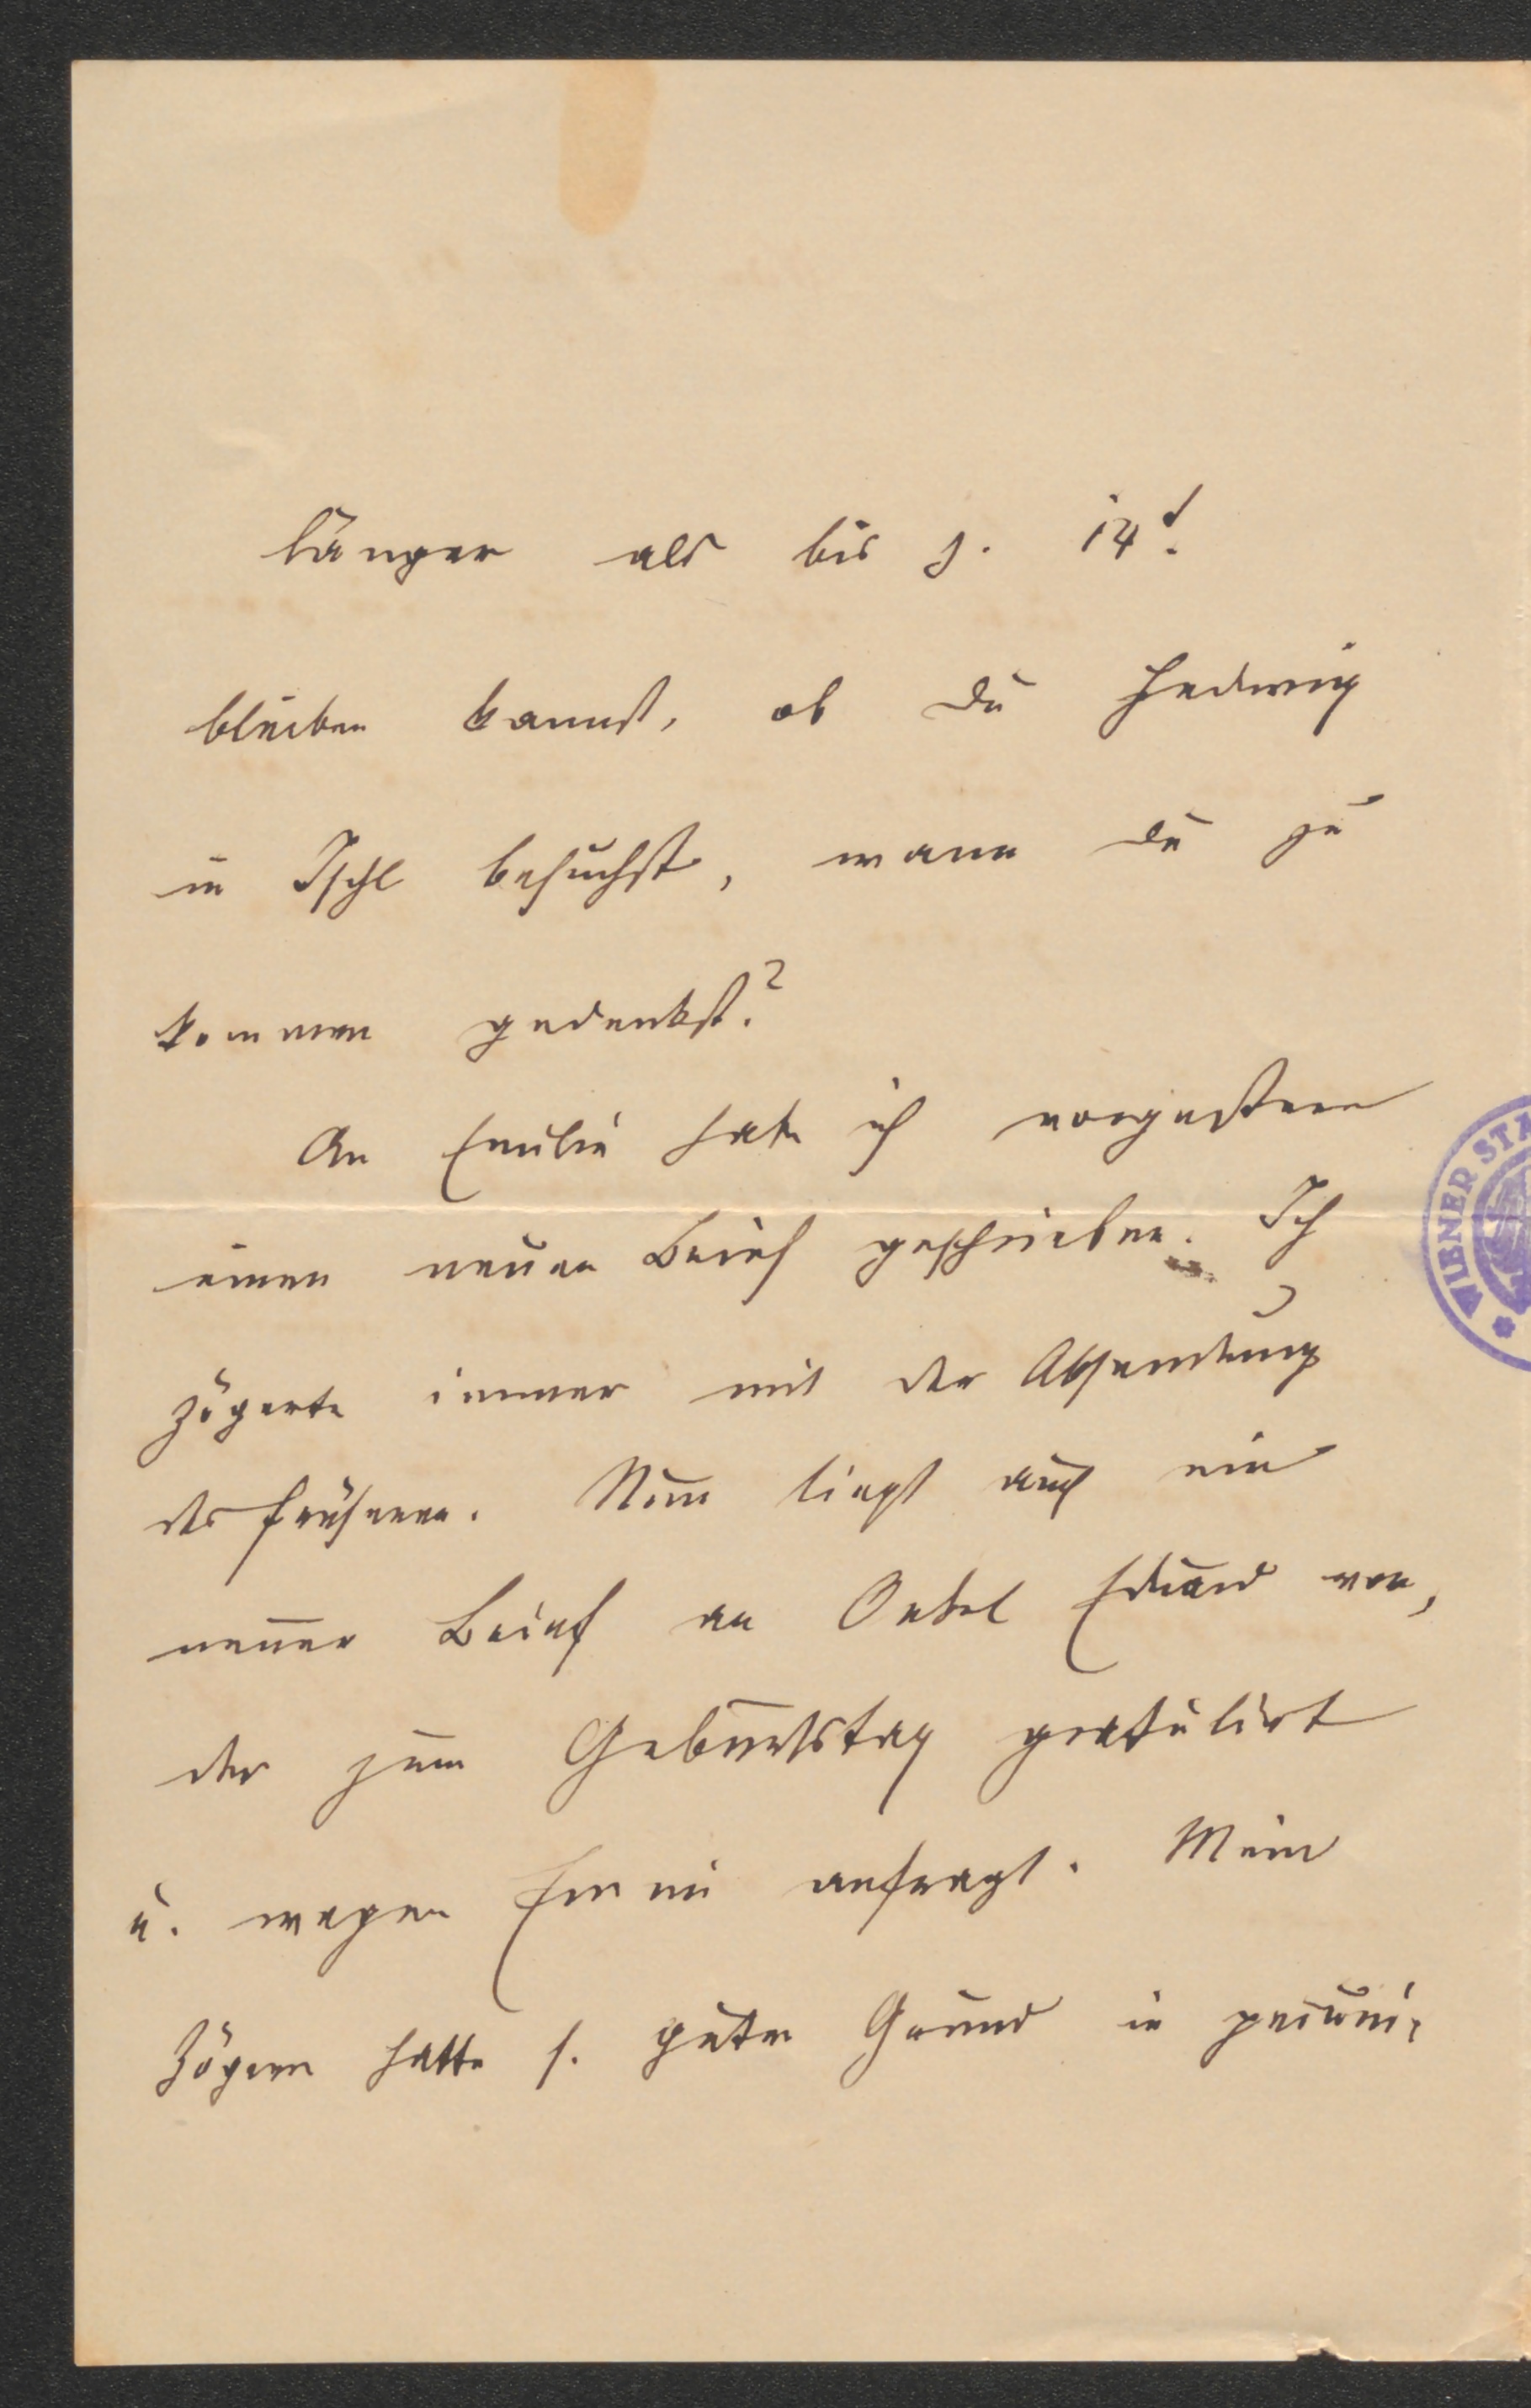 länger als bis z. 14t.
bleiben kannst, ob du Hedwig
in Ischl besuchst, wann du zu
kommen gedenkst?
An Emilie habe ich vorgestern
einen neuen Brief geschrieben. Ich
zögerte immer mit der Absendung
des früheren. Nun liegt auch ein
neuer Brief an Onkel Eduard vor,
der zum Geburtstag gratulirt
u. wegen Emmi anfragt. Mein
Zögern hatte s. guten Grund in pecuni-
WIENER STA